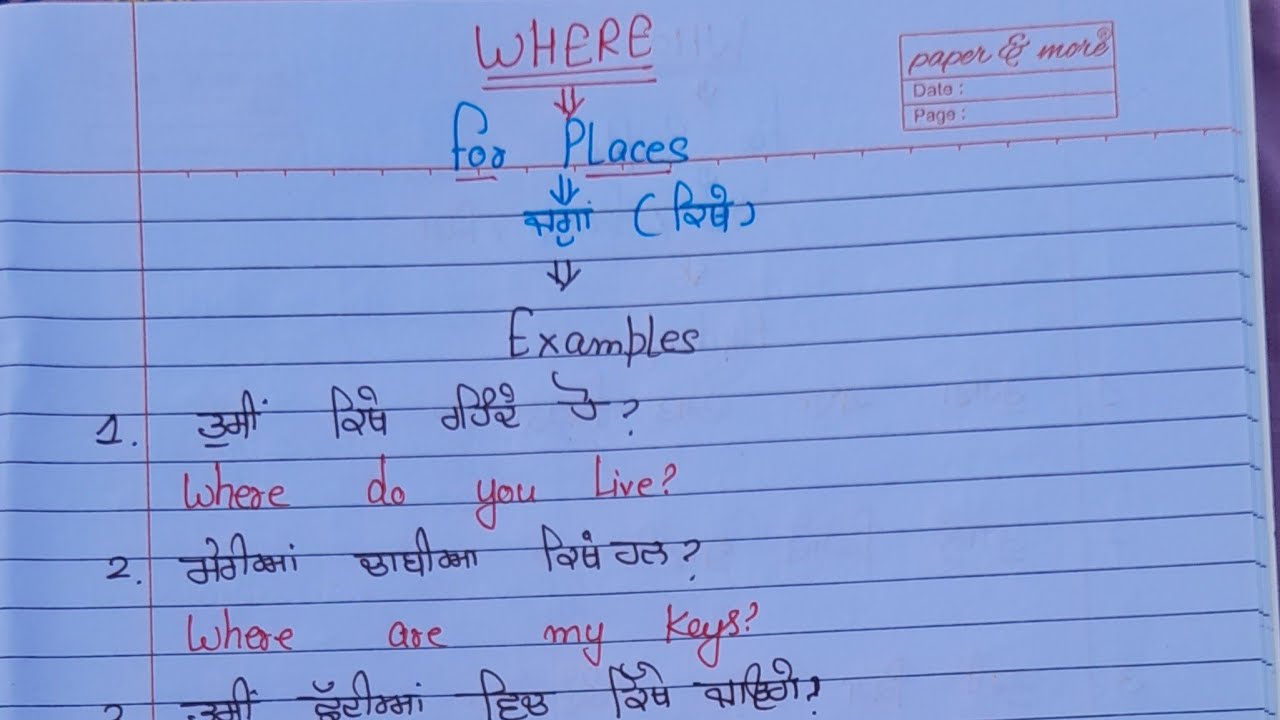 WHERE
paper & more
Date :
Page :
for Places
ਜਗ੍ਹਾਂ (ਕਿਥੇ)
Examples
1. ਤੁਸੀਂ ਕਿਥੇ ਰਹਿੰਦੇ ਹੋ?
Where do you Live?
2. ਮੇਰੀਆਂ ਚਾਬੀਆ ਕਿਥੇ ਹਨ?
Where are my Keys?
ਤੁਸੀਂ ਛੁੱਟੀਆਂ ਵਿਚ ਕਿੱਥੇ ਜਾਓਗੇ?